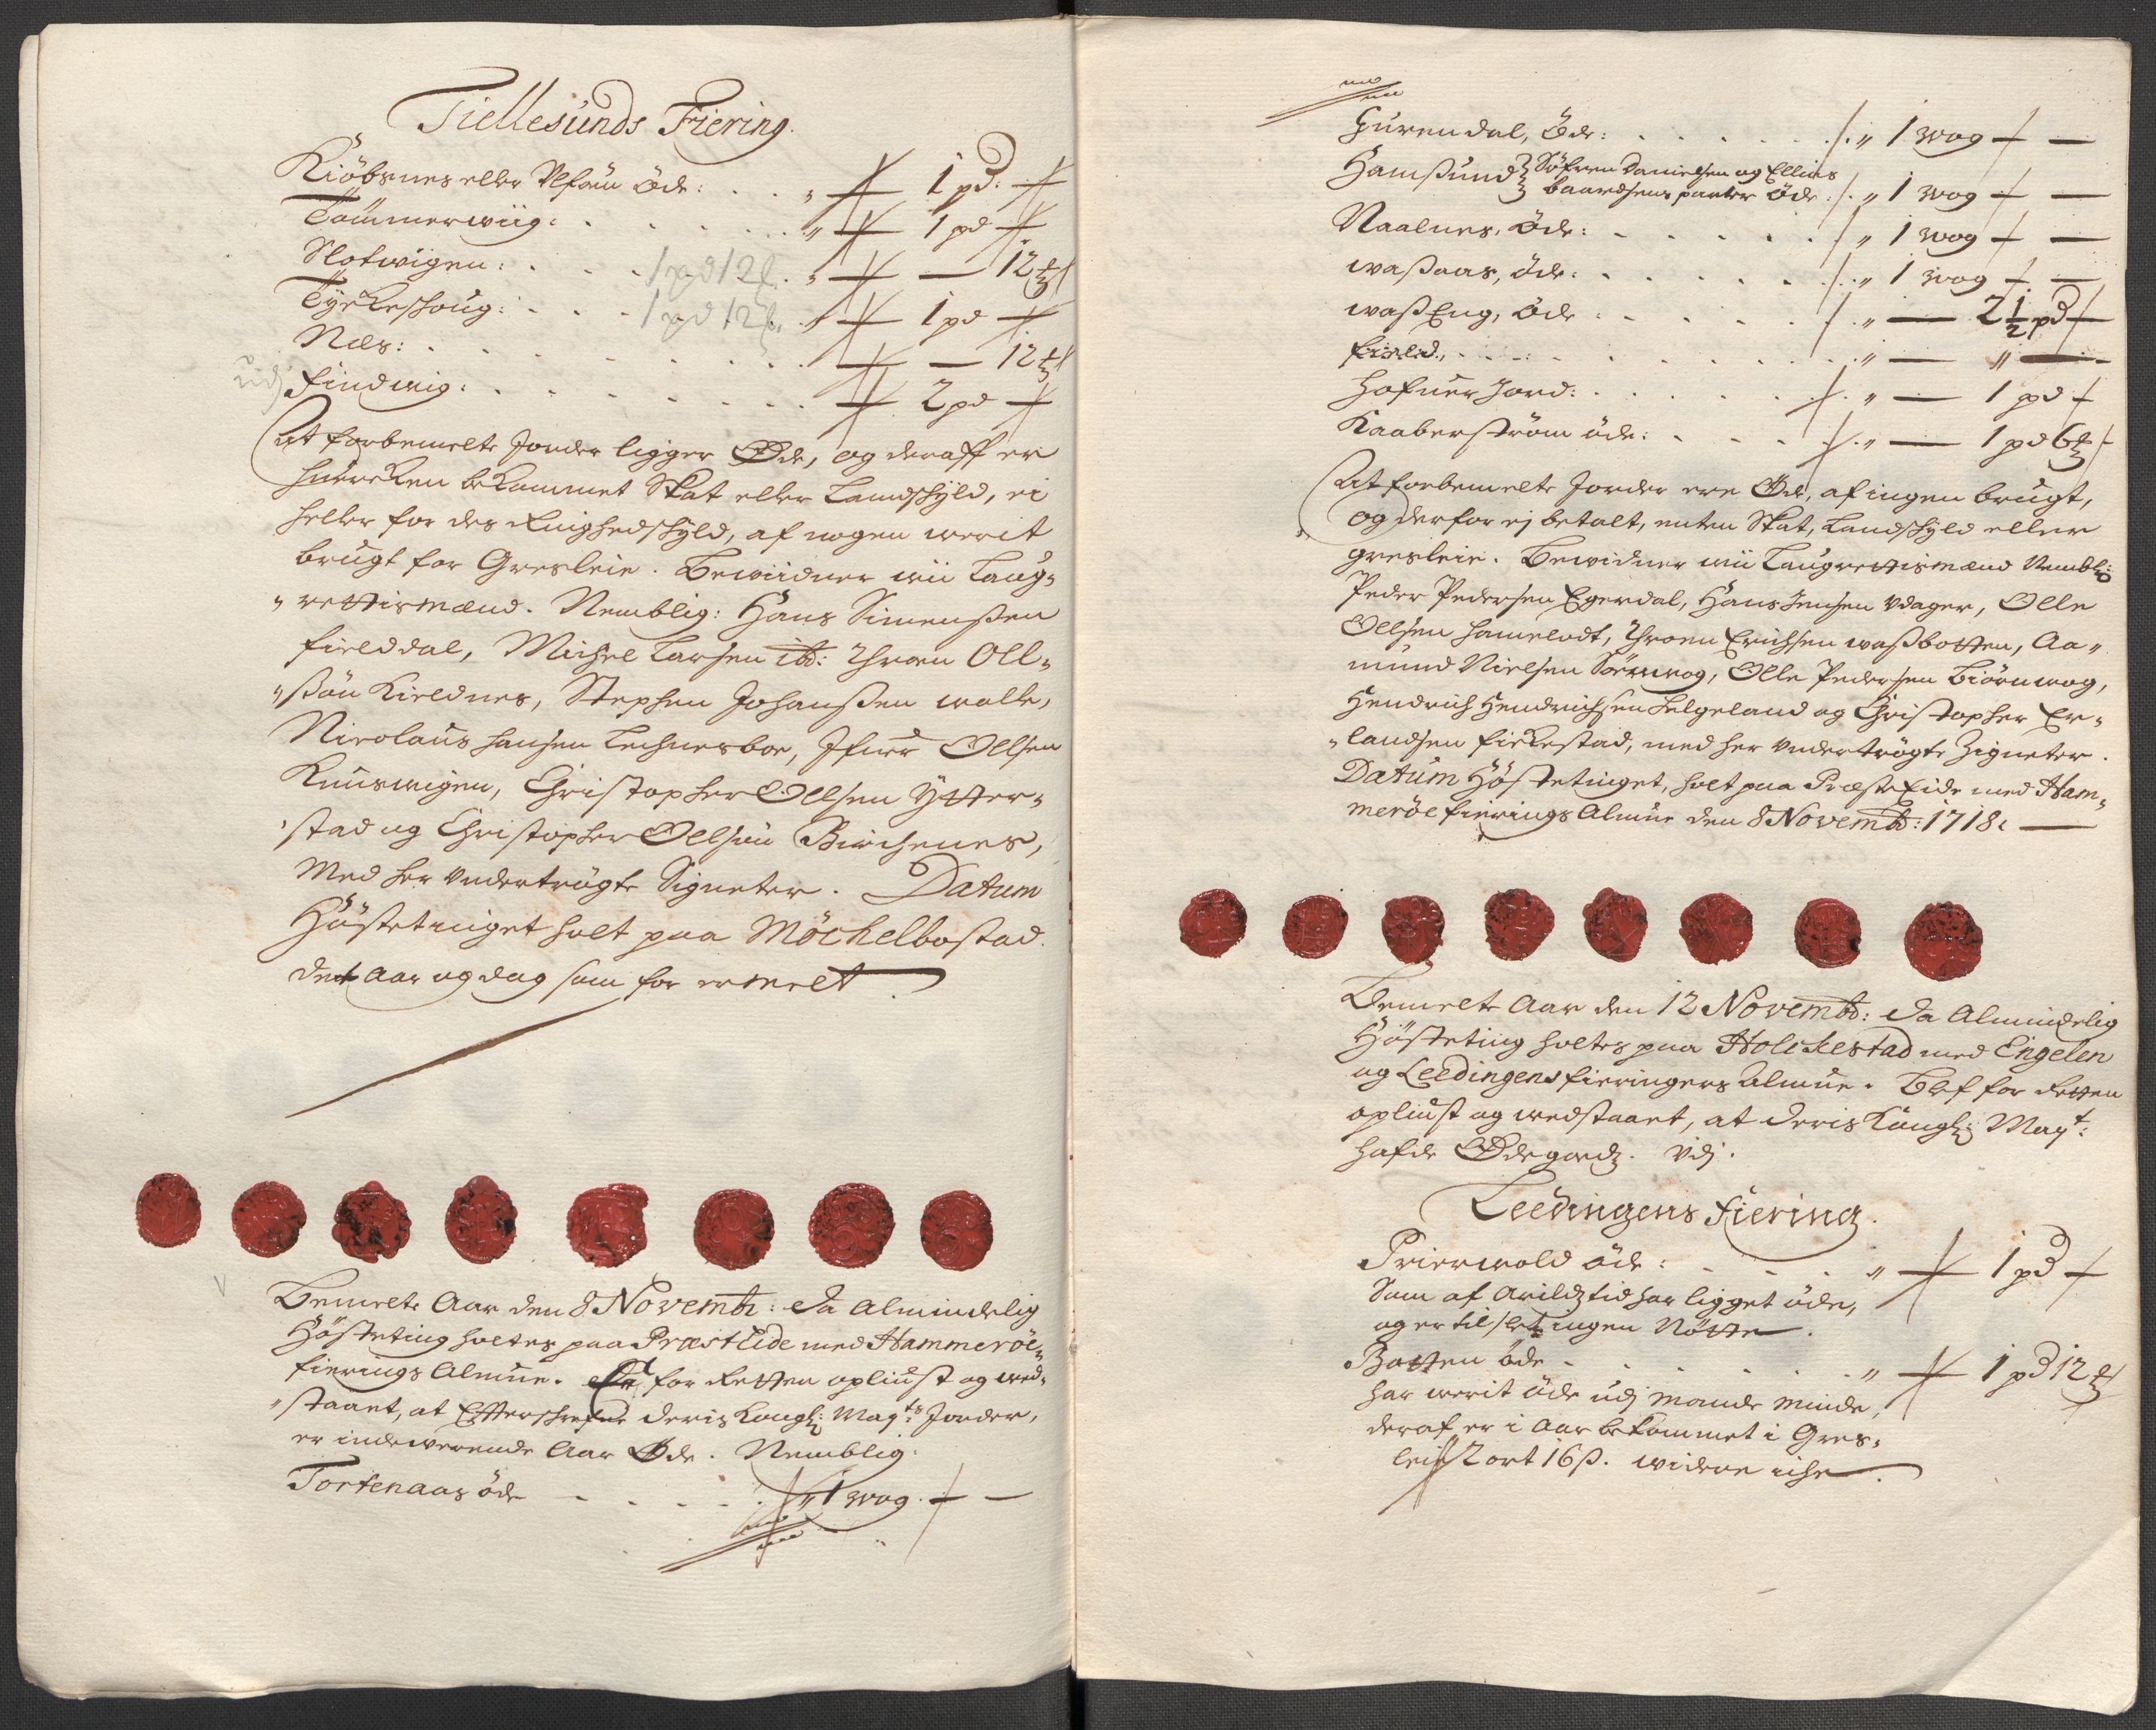 Tiellesunds Fiering.
Kiöbsnes eller Ulsøen öde: . . „ 1 pd:
Tömmerwiig: . . . . „ 1 pd
Slotwigen: . . 1 pd 12 . „ — 12
Tyrkeshoug: . . 1 pd 12 . 1 pd
Næs: . . . . — 12
udj Findwig: . . . . 2 pd
At forbemelte Jorder ligger Öde, og deraff er
huercken bekommet Skat eller Landschyld, ei
heller for des Ringhedschyld, af nogen werit
brugt for Gresleie. Bewiidner wii Laug-
„rettismænd. Nemblig: Hans Simensen
Fielddal, Michel Larsen ibd: Thron Oll-
„søn Kieldnes, Stephen Johansen wolle,
Nicolaus Hansen Lechnesboe, Ifuer Ollsen
Kuuswigen, Christopher Ollsen Ytter-
„stad og Christopher Ollsøn Birchenes,
Med her undertrögte Signeter. Datum
Höstetinget holt paa Möchelbostad.
det Aar og dag som for ermelt.
Bemelte Aar den 8 Novembr: da Almindelig
Hösteting holtes paa Præst Eide med Hammeröe
fierings Almue. for Retten opliust og wed-
„staaet, at Efterschrefne deris Kongl: Mayts Jorder,
er indewerende Aar Öde. Nemblig:
Tortenaas öde . . . . „ 1 wog. —
Husendal, Öde: . . . . „ 1 wog —
Hamsund Söfren Danielsen og Ellias
Baardsens parter öde . „ 1 wog —
Naalnes, öde: . . . . „ 1 wog —
wasaas, öde: . . . . „ 1 wog —
wasEng, öde . . . . „ — 2 1/2 pd
. . . . „ — „ —
Hofner Jord: . . . . „ — 1 pd
Kaaberström öde: . . . „ — 1 pd 6
At forbemelte Jorder ere Öde, af ingen brugt,
og derfor ej betalt, enten Skat, Landschyld eller
gresleie. Bewidner wii Laugrettismænd Nembl:
Peder Pedersen Egerdal, Hans Jensen Udager, Olle
Ollsen Hamelodt, Thron Erichsen wasbotten, Aa-
mund Nielsen Sörwog, Olle Pedersen Biörnwog,
Hendrich Hendrichsen Helgeland og Christopher Er-
„landsen Fickestad, med her undertrögte Zigneter.
Datum Höstetinget, holt paa PræstEide med Ham-
meröe fierings Almue den 8 Novembr: 1718. —
Bemelte Aar den 12 Novembr: da Almindelig
Hösteting holtes paa Holckestad med Engelen
og Leedingens fieringers Almue. Blef for Retten
opliust og wedstaaet, at deris Kongl: Mayt:
hafde Ödegaard. Udj.
Leedingens Fiering.
Prierwold öde: . . . „ 1 pd
Som af Arildtid har ligget öde,
og er til slet ingen Nötte.
Botten öde . . . . „ 1 pd 12
har werit öde udj mands minde,
deraf er i Aar bekommet i Gres-
leie 2 ort 16 s. widere iche.